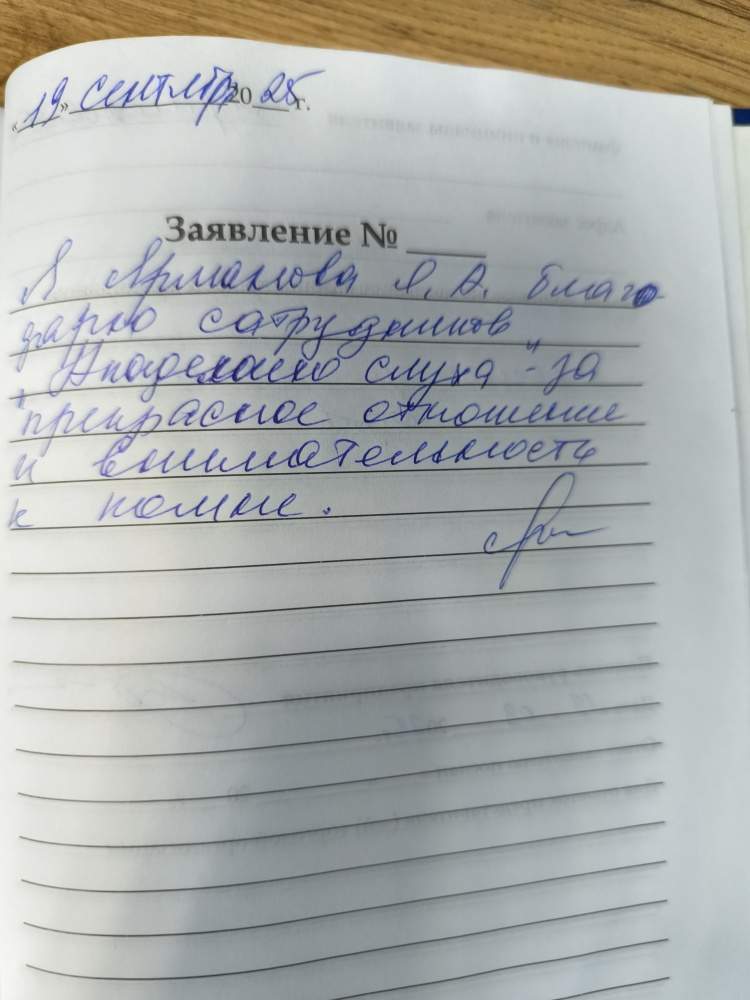 «19» сентябр 2025 г.
Заявление №
Я Ярмакова Л. А. благо
дарю сотрудников
"Академию слуха" за
прекрасное отношение
и внимательность
к